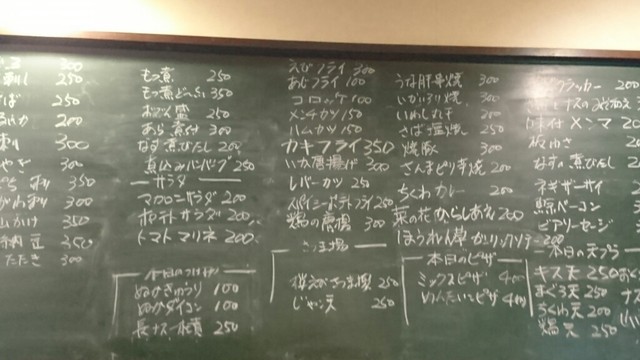 300
刺し 250
250
200
刺り 300
300
350
300
山かけ 350
納豆 350
たたき 300
もつ煮 250
もつ煮どうふ 350
おしん盛 250
あら煮付 300
なす煮びたし 200
煮込みハンバーグ 250
サラダ
マカロニサラダ 200
ポテトサラダ 200
トマトマリネ 200
本日のつけもの
ぬかきゅうり 100
ぬかダイコン 100
長ナス一本漬 250
えびフライ 300
あじフライ 100
コロッケ 100
メンチカツ 150
ハムカツ 150
カキフライ 350
いか唐揚げ 300
レバーカツ 250
スパイシーポテトフライ 250
鶏の唐揚 300
さつま揚
桜えびさつま揚 250
じゃこ天 250
うな肝串焼 300
いかぶり焼 300
いわし丸干 200
さば塩焼 250
焼豚 300
さんまピリ辛焼 200
ちくわカレー 250
菜の花からしあえ 200
ほうれん草ガーリックソテー 200
本日のピザ
ミックスピザ 400
めんたいこピザ 400
クラッカー 200
味付メンマ 200
板わさ 200
なすの煮びたし
ネギチャーシュー
鯨ベーコン
ビアソーセージ
本日の天ぷら
キス天 250
まぐろ天 250
ちくわ天 200
鶏天 250